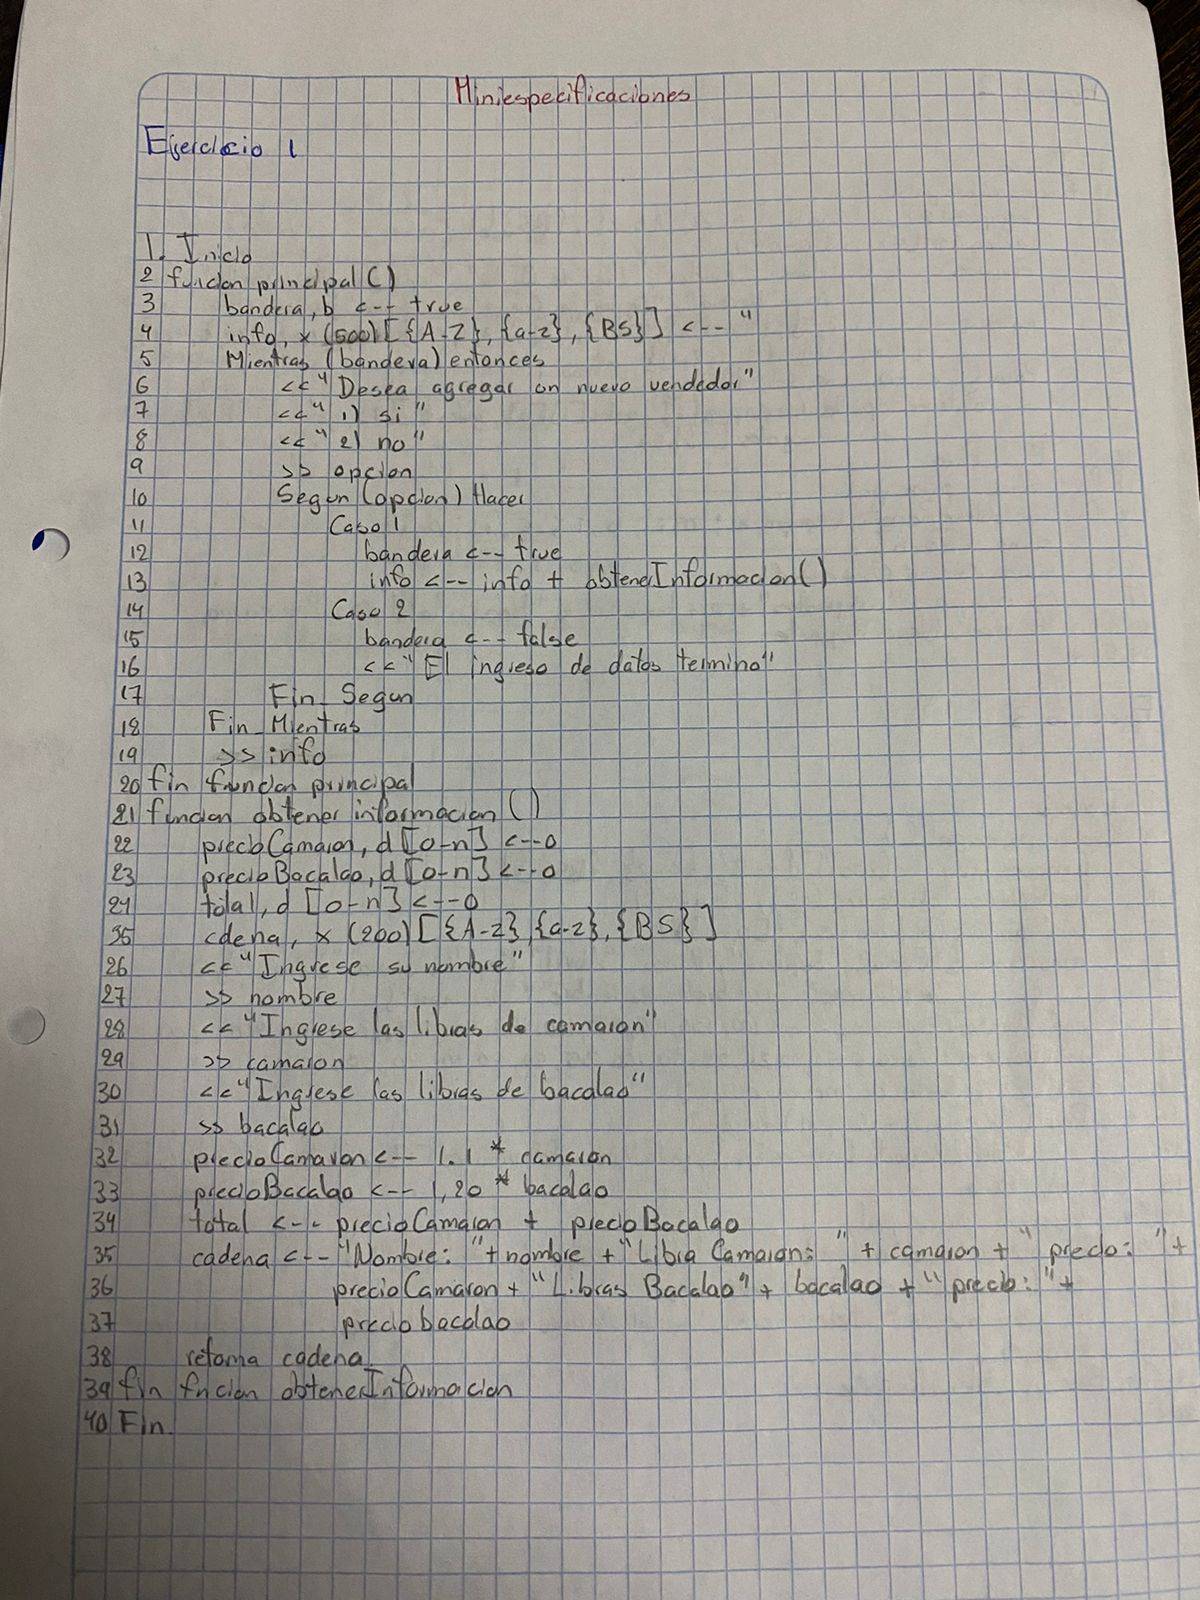 Miniespecificaciones
Ejercicio 1
1. Inicio
2 funcion principal ()
3 bandera, b <-- true
4 info, x (500) [{A-Z}, {a-z}, {BS}] <-- "
5 Mientras (bandera) entonces
6 << "Desea agregar un nuevo vendedor"
7 << "1) si"
8 << "2) no"
9 >> opcion
10 Segun (opcion) Hacer
11 Caso 1
12 bandera <-- true
13 info <-- info + obtenerInformacion()
14 Caso 2
15 bandera <-- false
16 << "El ingreso de datos termino"
17 Fin_Segun
18 Fin_Mientras
19 >> info
20 fin funcion principal
21 funcion obtener informacion ()
22 precioCamaron, d [0-n] <--0
23 precioBacalao, d [0-n] <--0
24 total, d [0-n] <--0
35 cdena, x (200) [{A-z}, {a-z}, {BS}]
26 << "Ingrese su nombre"
27 >> nombre
28 << "Ingrese las libras de camaron"
29 >> camaron
30 << "Ingrese las libras de bacalao"
31 >> bacalao
32 precioCamaron <-- 1.1 * camaron
33 precioBacalao <-- 1,20 * bacalao
34 total <-- precioCamaron + precioBacalao
35 cadena <-- "Nombre: "+ nombre + "Libra Camaron: " + camaron + " precio: "+
36 precioCamaron + "Libras Bacalao" + bacalao + "precio:"+
37 preciobacalao
38 retorna cadena
39 fin fncion obtenerInformacion
40 Fin.